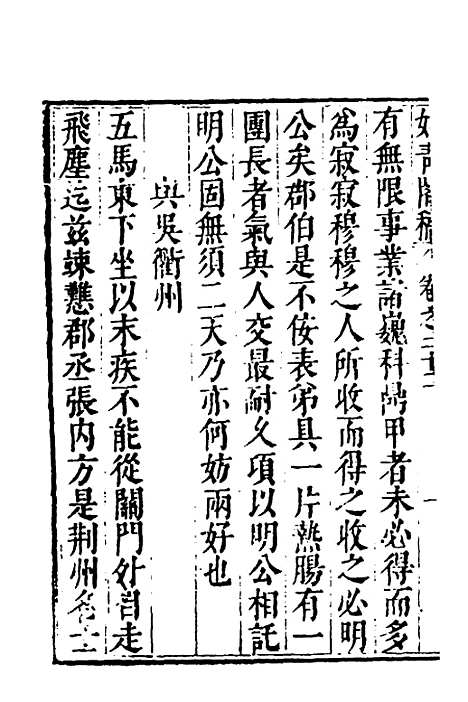 有無限事業諸巍科鼎甲者未必得而多
為寂寂穆穆之人所收而得之收之必明
公矣郡伯是不佞表弟具一片熱腸有一
團長者氣與人交最耐久項以明公相託
明公固無須二天乃亦何妨兩好也
與吳衢州
五馬東下坐以末疾不能從關門外目走
飛塵迄茲竦戀郡丞張內方是荆州